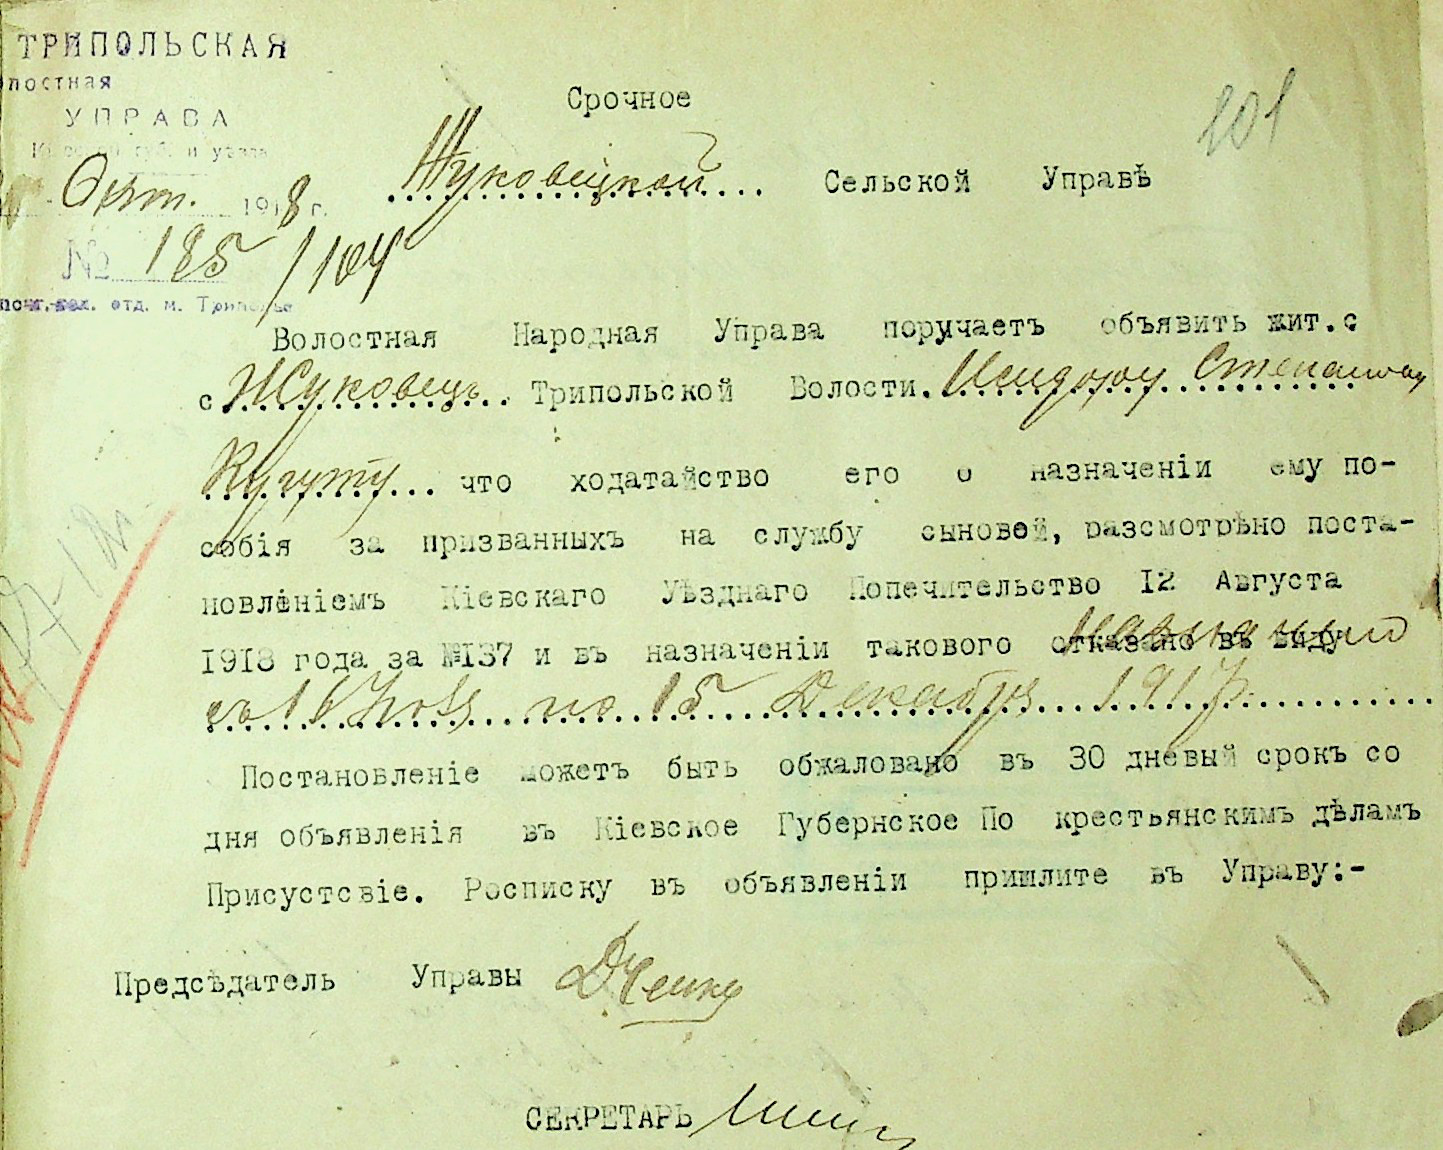 ТРИПОЛЬСКАЯ
лостная
УПРАВА
губ. и уезда
Окт. 1918 г.
№ 185/104
отд. м. Триполье
201
Срочное
Жуковецкой Сельской Управѣ
Волостная Народная Управа поручаетъ объявить жит. с
с Жуковецъ Трипольской Волости. Исидору Степанову
Кугуту что ходатайство его о назначеніи ему по-
собія за призванныхъ на службу сыновей, разсмотрѣно поста-
новленіемъ Кіевскаго Уѣзднаго Попечительство 12 Августа
1918 года за №137 и въ назначеніи такового отказано въ виду
съ 16 по 15 Декабря 1917 г.
Постановленіе можетъ быть обжаловано въ 30 дневый срокъ со
дня объявленія въ Кіевское Губернское По крестьянскимъ дѣламъ
Присустсвіе. Росписку въ объявленіи пришлите въ Управу:-
Предсѣдатель Управы
СЕКРЕТАРЬ